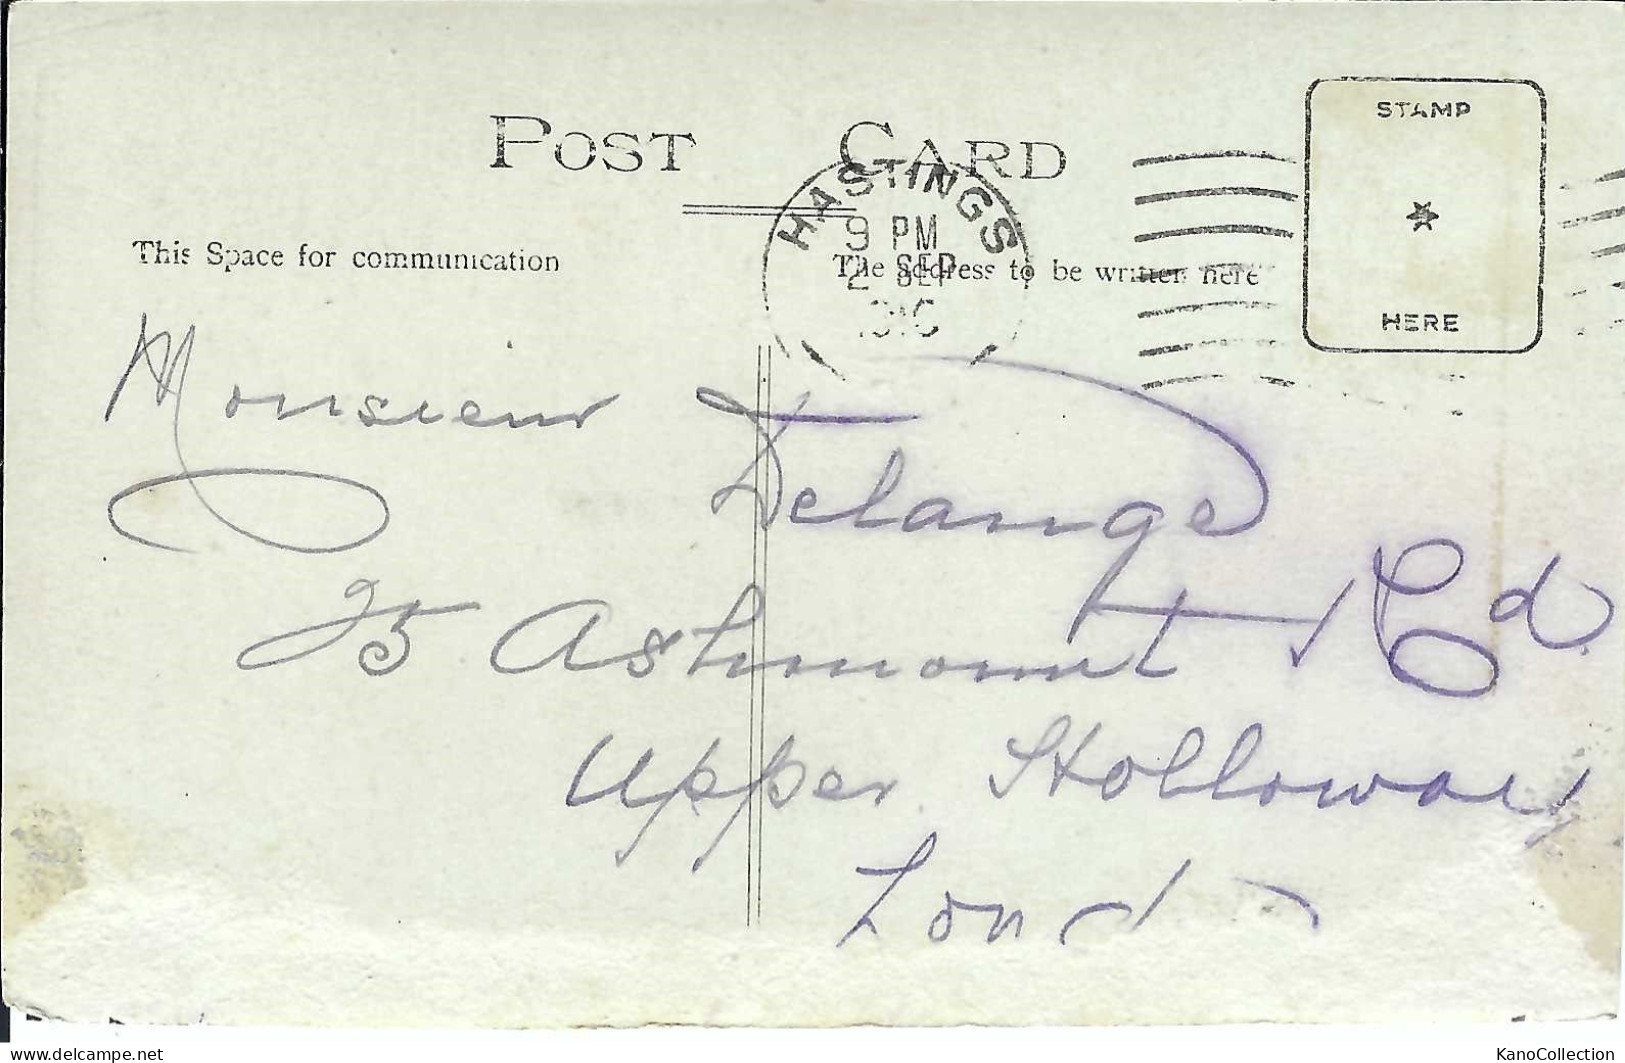 POST CARD
STAMP
HERE
HASTINGS
9 PM
2 SEP
This Space for communication
The address to be written here
Monsieur Delange
25 Ashmount Rd
Upper Holloway
London
delcampe.net
KanoCollection